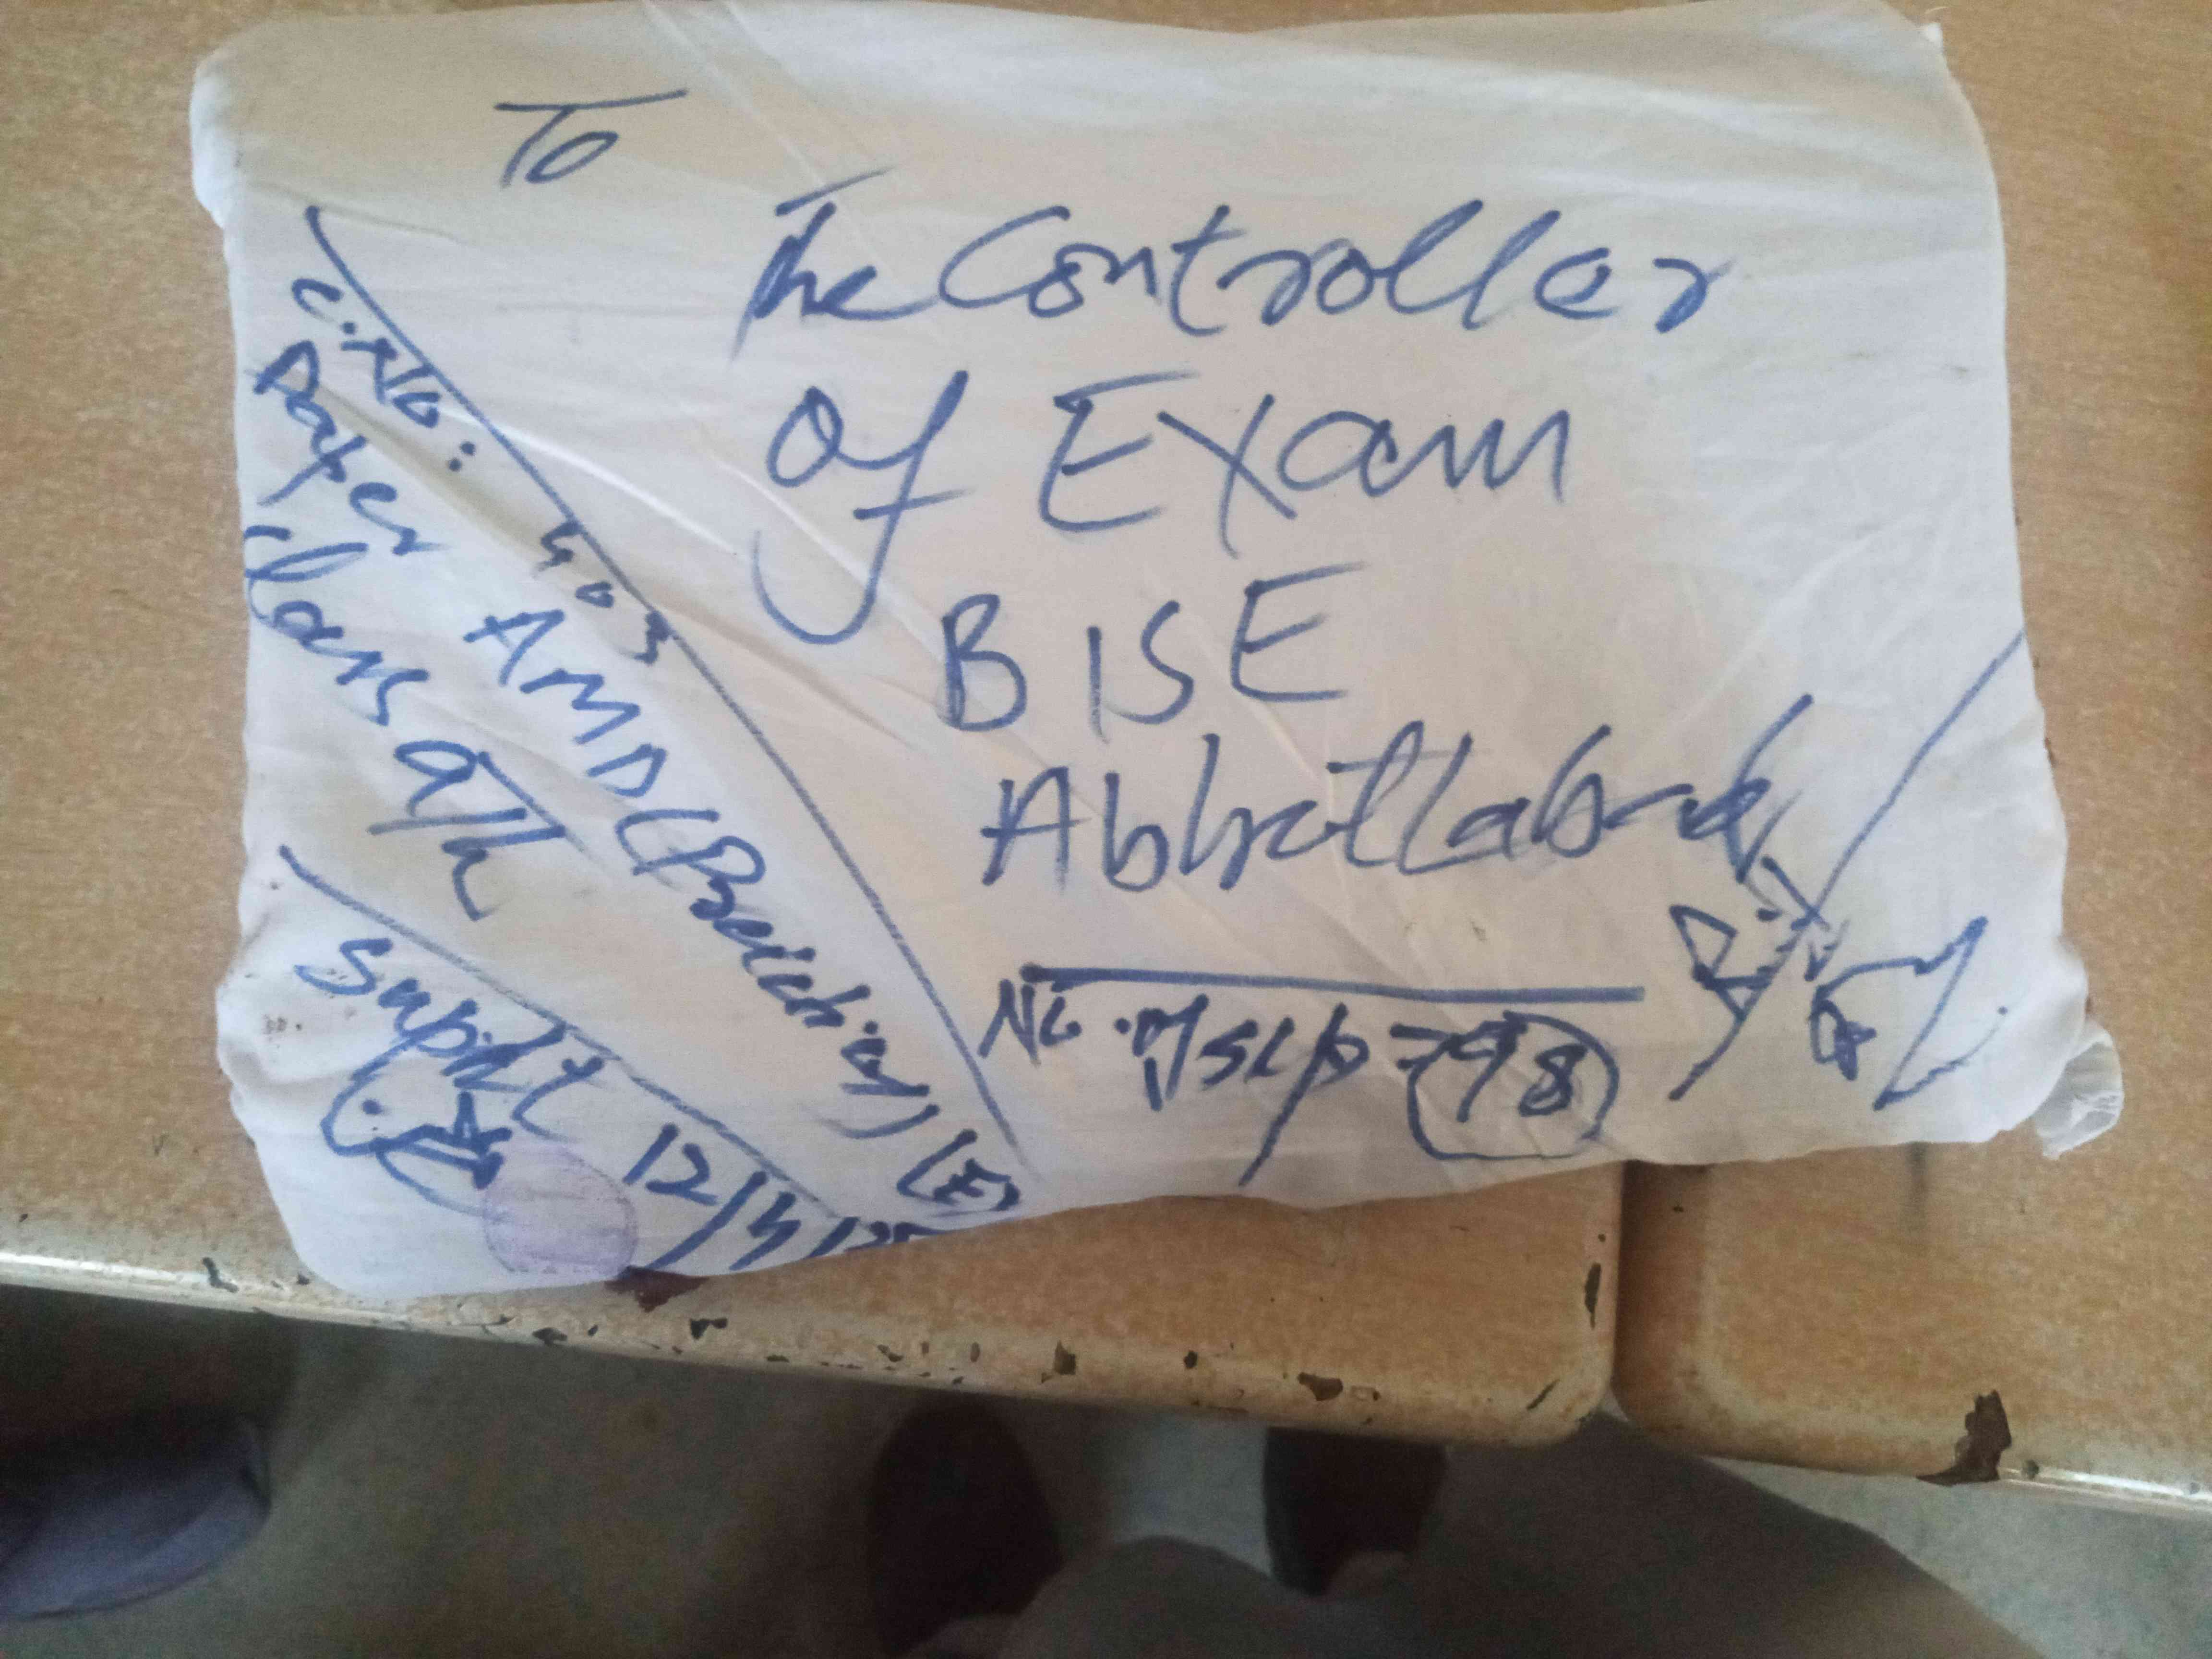 To
The Controller
Of Exam
BISE
Abbottabad
No. of SLP = 98
C.No: 403
Paper AMD (Practical) (E)
Class 9th
Supdt
12/4/25